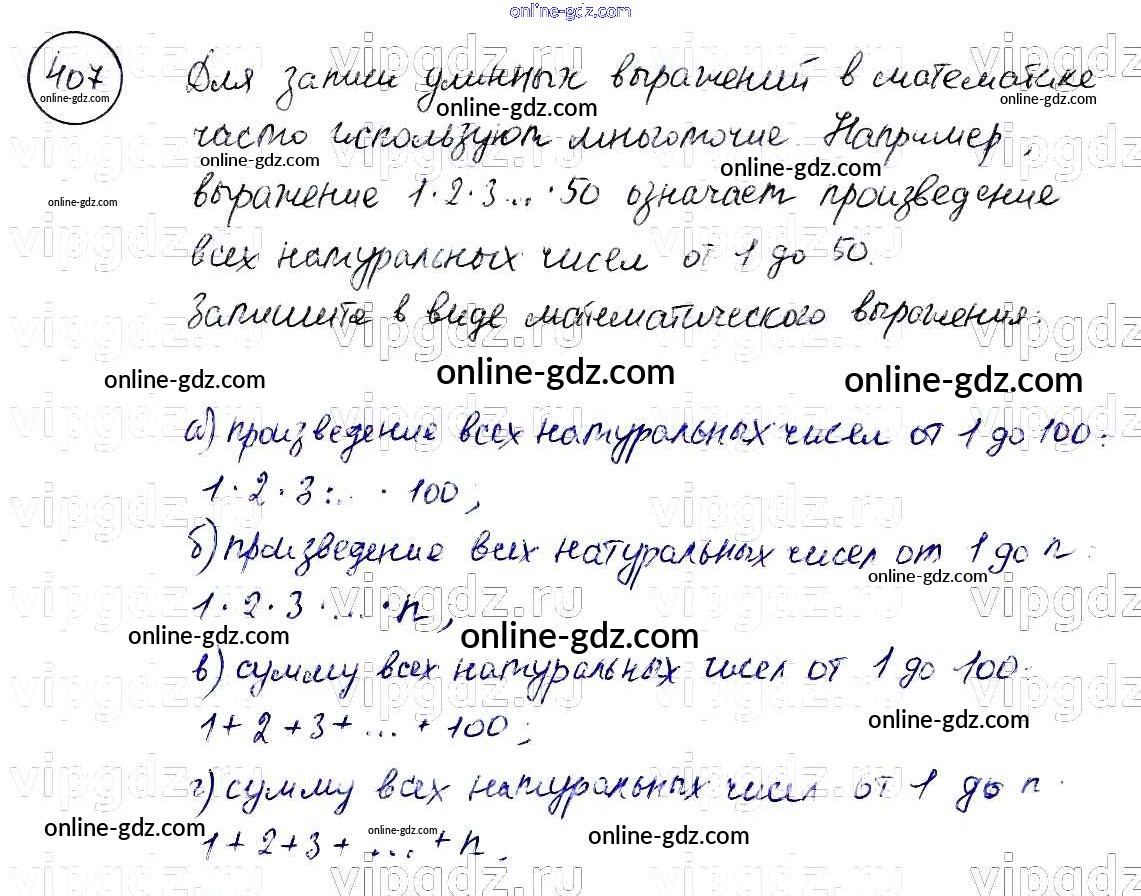 online-gdz.com
407 Для записи длинных выражений в математике
часто используют многоточие Например,
выражение 1·2·3... ·50 означает произведение
всех натуральных чисел от 1 до 50.
Запишите в виде математического выражения:
а) произведение всех натуральных чисел от 1 до 100:
1·2·3·... · 100;
б) произведение всех натуральных чисел от 1 до n:
1·2·3·...·n;
в) сумму всех натуральных чисел от 1 до 100:
1+2+3+...+100;
г) сумму всех натуральных чисел от 1 до n:
1+2+3+...+n.